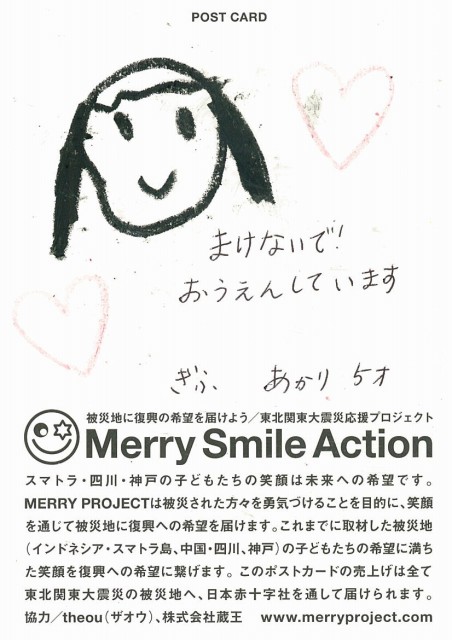 POST CARD
まけないで!
おうえんしています
ぎふ あかり 5才
被災地に復興の希望を届けよう／東北関東大震災応援プロジェクト
Merry Smile Action
スマトラ・四川・神戸の子どもたちの笑顔は未来への希望です。
MERRY PROJECTは被災された方々を勇気づけることを目的に、笑顔
を通じて被災地に復興への希望を届けます。これまでに取材した被災地
（インドネシア・スマトラ島、中国・四川、神戸）の子どもたちの希望に満ち
た笑顔を復興への希望に繋げます。このポストカードの売上げは全て
東北関東大震災の被災地へ、日本赤十字社を通して届けられます。
協力／theou（ザオウ）、株式会社蔵王 www.merryproject.com